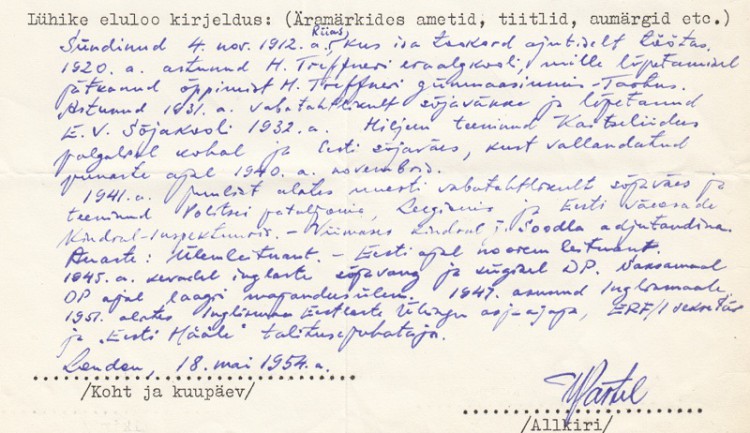 Lühike eluloo kirjeldus: (Äramärkides ametid, tiitlid, aumärgid etc.)
Riias
Sündinud 4. nov. 1912. a. kus isa teekord ajutiselt töötas.
1920. a. astunud H. Treffneri eraalgkooli, mille lõpetamisel
jätkanud õppimist H. Treffneri gümnaasiumis - Tartus.
Astunud 1931. a. vabatahtlikult sõjaväkke ja lõpetanud
E.V. Sõjakooli 1932. a. Hiljem teeninud Kaitseliidus
palgalisel kohal ja Eesti sõjaväes, kust vallandatud
punaste ajal 1940. a. novembris.
1941. a. juulist alates uuesti vabatahtlikult sõjaväes ja
teeninud Politsei pataljonis, Leegionis ja Eesti Väeosade
Kindral-Inspektuuris. - Viimases kindral J. Soodla adjutandina.
Auaste: Ülemleitnant. - Eesti ajal noorem leitnant.
1945. a. kevadel inglaste sõjavang ja sügisel DP. Saksamaal
DP ajal laagri majandusülem. 1947. asunud Inglismaale.
1951. alates Inglismaa Eestlaste Ühingu asjaajaja, ERF/I sekretär
ja "Eesti Hääle" talitusejuhataja.
London, 18. mai 1954. a.
/Koht ja kuupäev/
/Allkiri/